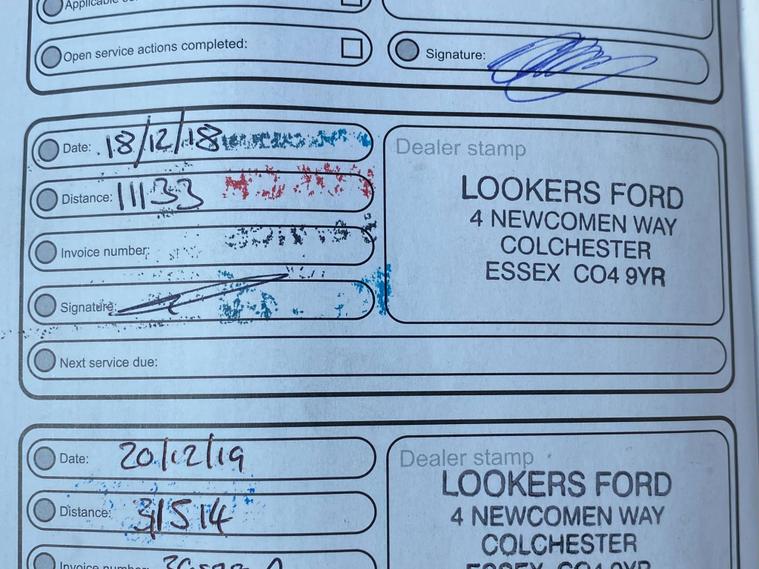 Applicable
Open service actions completed:
Signature:
Date: 18/12/18
Distance: 11133
Invoice number:
Signature:
Next service due:
Dealer stamp
LOOKERS FORD
4 NEWCOMEN WAY
COLCHESTER
ESSEX CO4 9YR
Date: 20/12/19
Distance: 31514
Invoice number:
Dealer stamp
LOOKERS FORD
4 NEWCOMEN WAY
COLCHESTER
ESSEX CO4 9YR